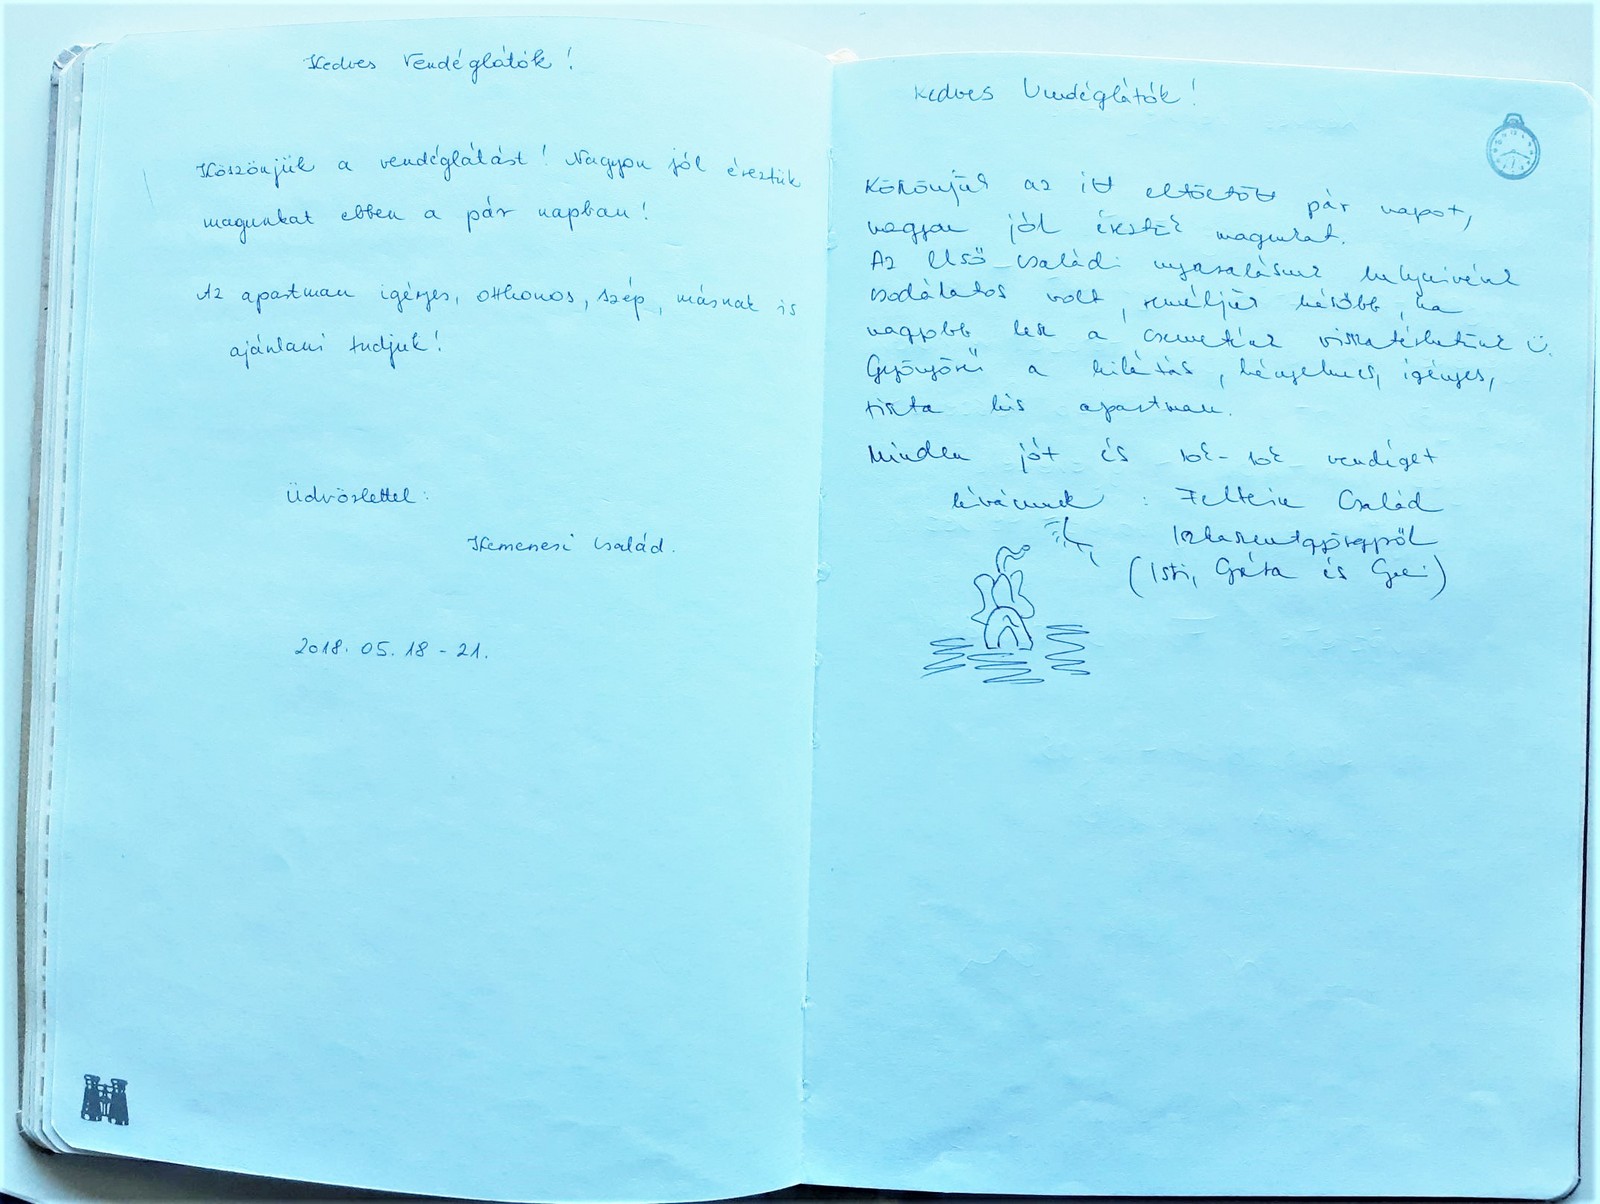 Kedves Vendéglátók!
Köszönjük a vendéglátást! Nagyon jól éreztük
magunkat ebben a pár napban!
Az apartman igényes, otthonos, szép, másnak is
ajánlani tudjuk!
Üdvözlettel:
Kemenesi Család.
2018. 05. 18 - 21.
Kedves Vendéglátók!
Köszönjük az itt eltöltött pár napot,
nagyon jól éreztük magunkat.
Az első családi nyaralásunk helyszínént
csodálatos volt, reméljük később, ha
nagyobb lesz a csemeténk visszatérhetünk Ü.
Gyönyörű a kilátás, kényelmes, igényes,
tiszta kis apartman.
Minden jót és sok-sok vendéget
kívánunk: Család
(Isti, Gréta és)